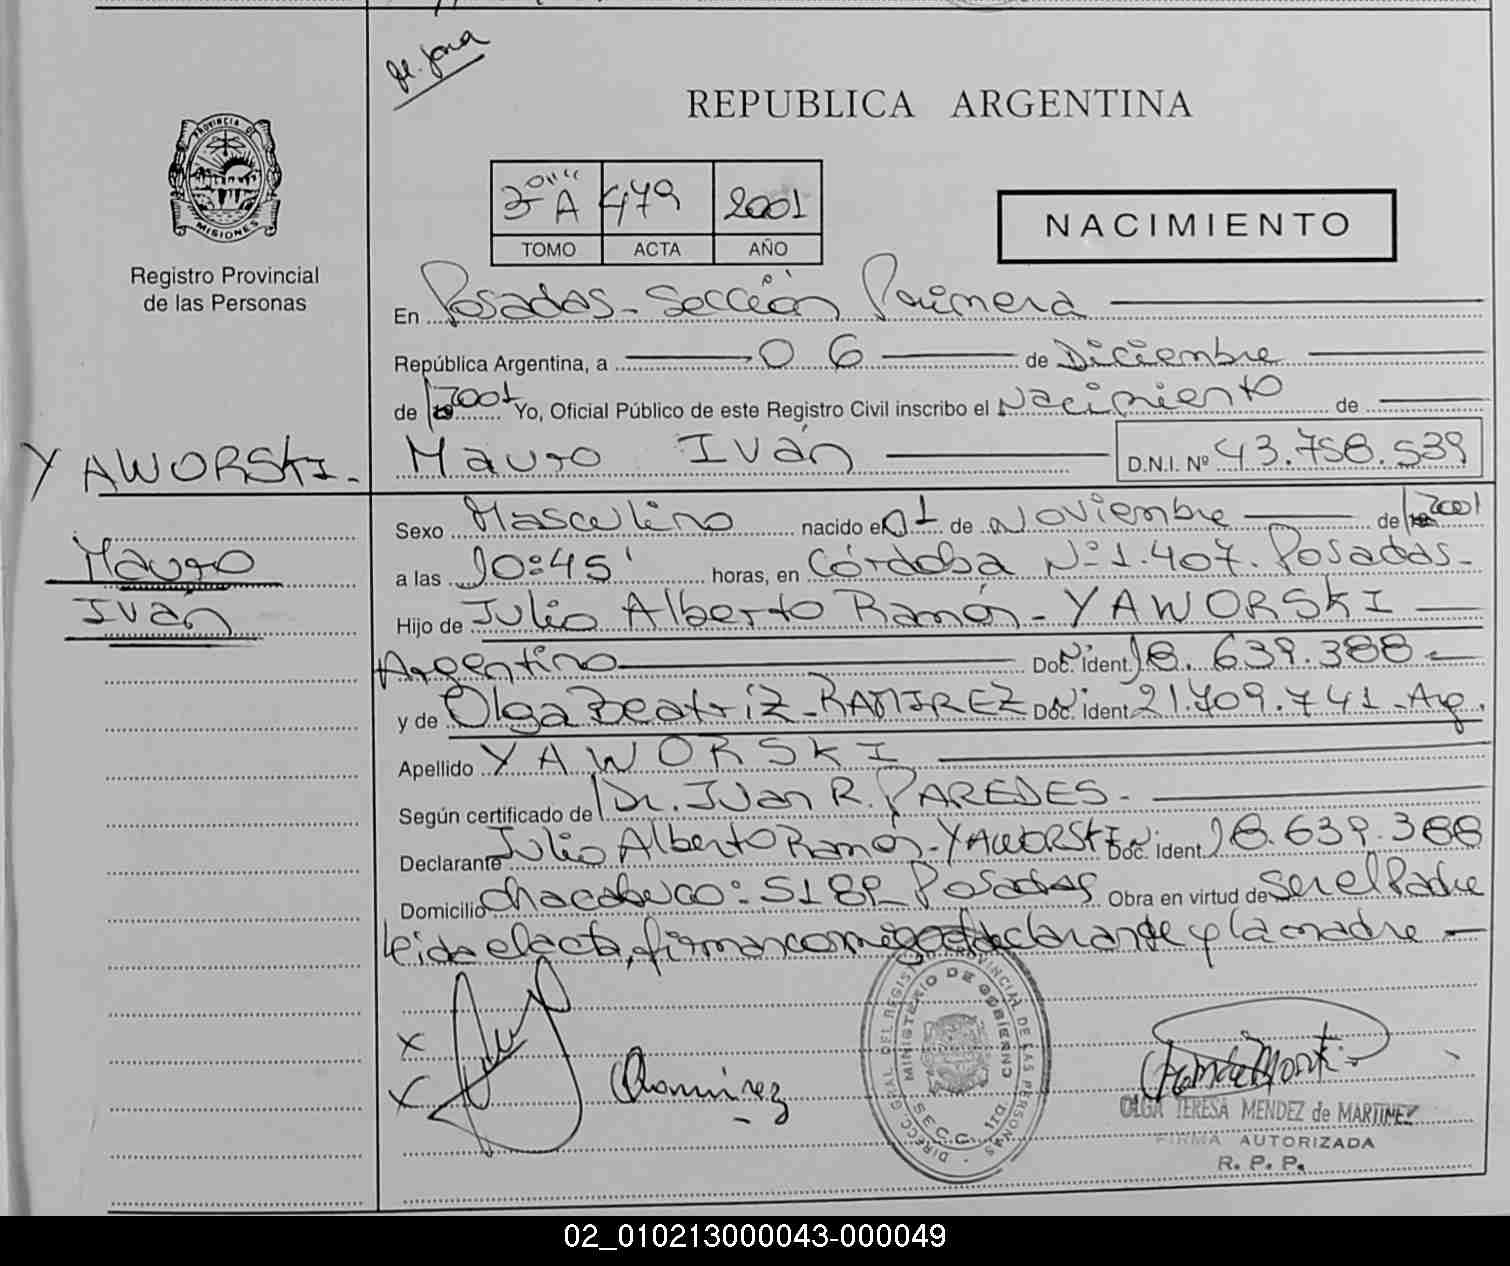 REPUBLICA ARGENTINA
PROVINCIA DE
MISIONES
Registro Provincial
de las Personas
3º A 479 2001
TOMO ACTA AÑO
NACIMIENTO
En Posadas - Sección Primera
República Argentina, a 06 de Diciembre
de 2001 Yo, Oficial Público de este Registro Civil inscribo el Nacimiento de
Mauro Iván D.N.I. Nº 43.758.539
YAWORSKI.-
Mauro
Iván
Sexo Masculino nacido el 01 de Noviembre de 2001
a las 10:45' horas, en Córdoba Nº 1.407. Posadas-
Hijo de Julio Alberto Ramón - YAWORSKI
Argentino Doc. ident. 18.639.388
y de Olga Beatríz - RAMIREZ Doc. ident. 21.709.741 - Arg.
Apellido YAWORSKI
Según certificado de Dr. Juan R. PAREDES -
Declarante Julio Alberto Ramón - YAWORSKI Doc. ident. 18.639.388
Domicilio Chacabuco: 5182 Posadas Obra en virtud de Ser el Padre
Leida el acta, firman conmigo el declarante y la madre
X
X
Ramirez
DIRECC. GRAL. DEL REGISTRO PROVINCIAL DE LAS PERSONAS
MINISTERIO DE GOBIERNO
SECC. 1ra.
OLGA TERESA MENDEZ de MARTINEZ
FIRMA AUTORIZADA
R. P. P.
02_010213000043-000049